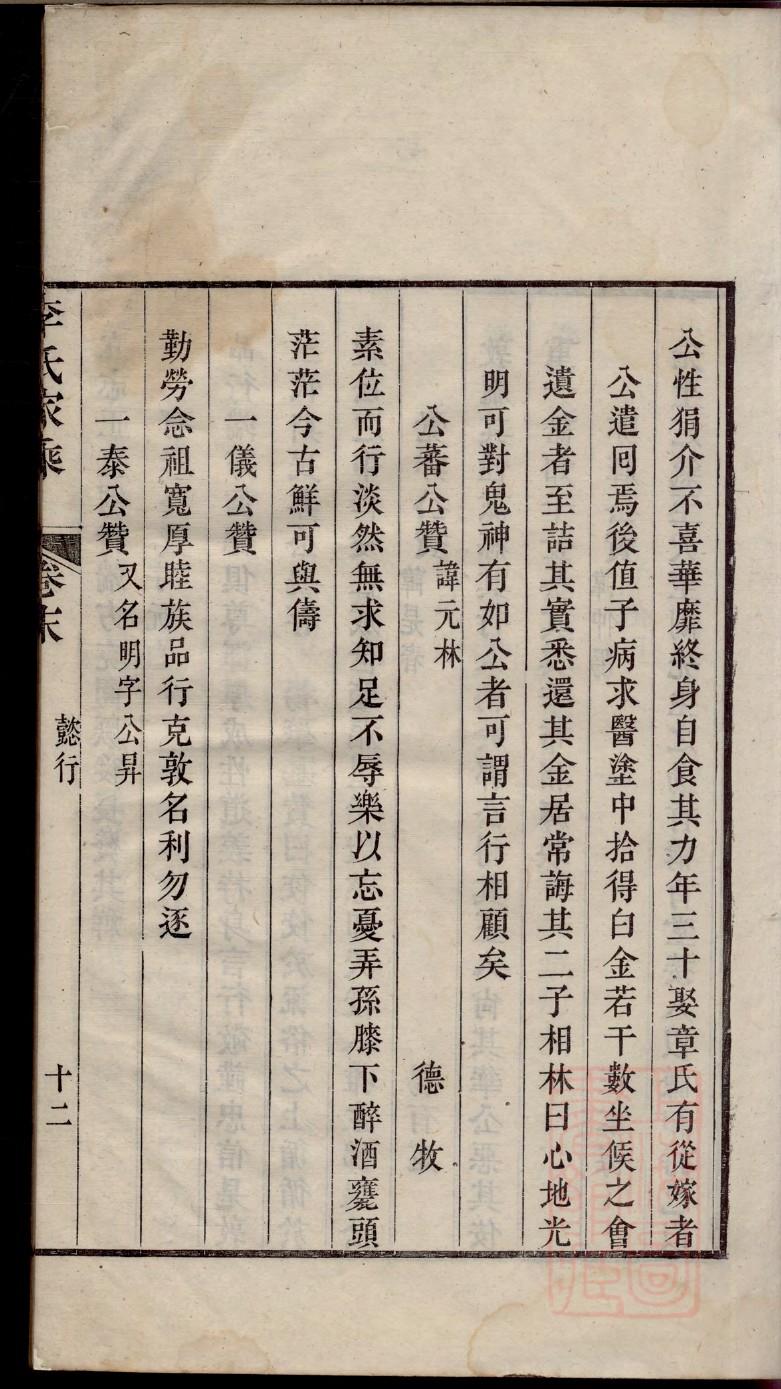 公性狷介不喜華靡終身自食其力年三十娶章氏有從嫁者
公遣囘焉後值子病求醫塗中拾得白金若干數坐候之會
遺金者至詰其實悉還其金居常誨其二子相林曰心地光
明可對鬼神有如公者可謂言行相顧矣
公蕃公贊 諱元林 德牧
素位而行淡然無求知足不辱樂以忘憂弄孫膝下醉酒甕頭
茫茫今古鮮可與儔
一儀公贊
勤勞念祖寬厚睦族品行克敦名利勿逐
一泰公贊 又名明字公昇
李氏家乘 卷末 懿行 十二